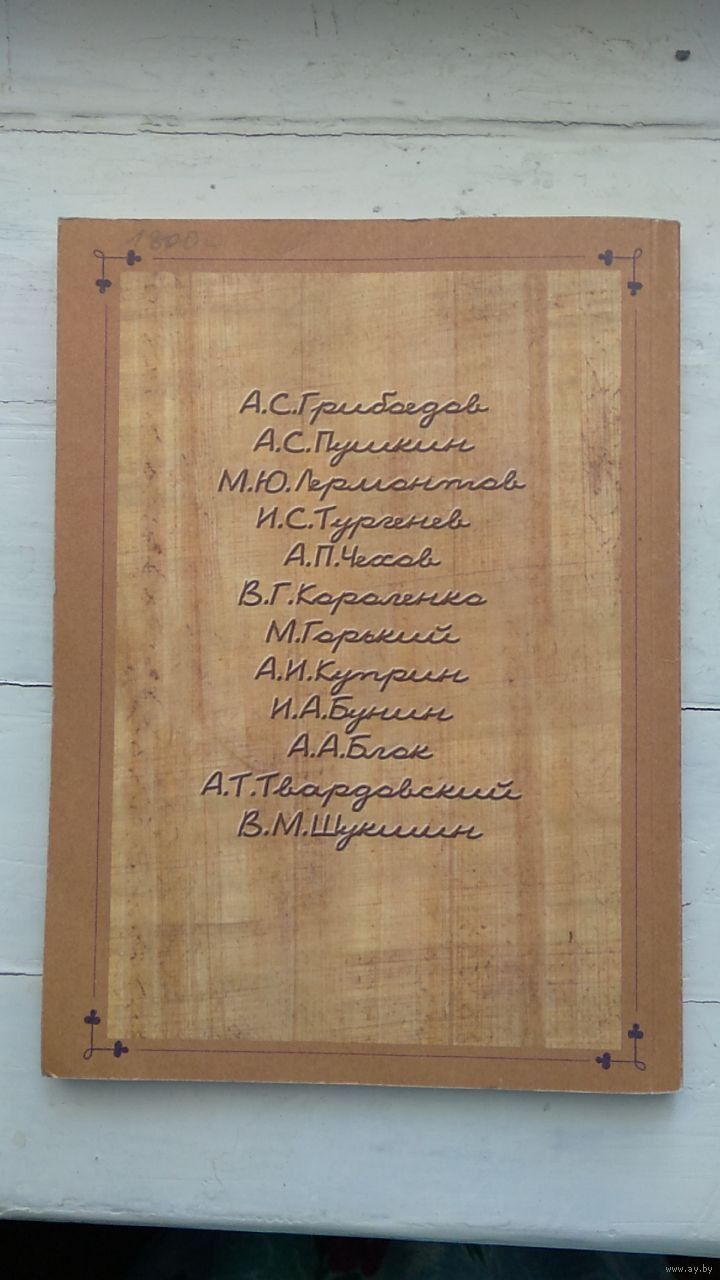 1800
А.С.Грибоедов
А.С.Пушкин
М.Ю.Лермонтов
И.С.Тургенев
А.П.Чехов
В.Г.Короленко
М.Горький
А.И.Куприн
И.А.Бунин
А.А.Блок
А.Т.Твардовский
В.М.Шукшин
www.ay.by